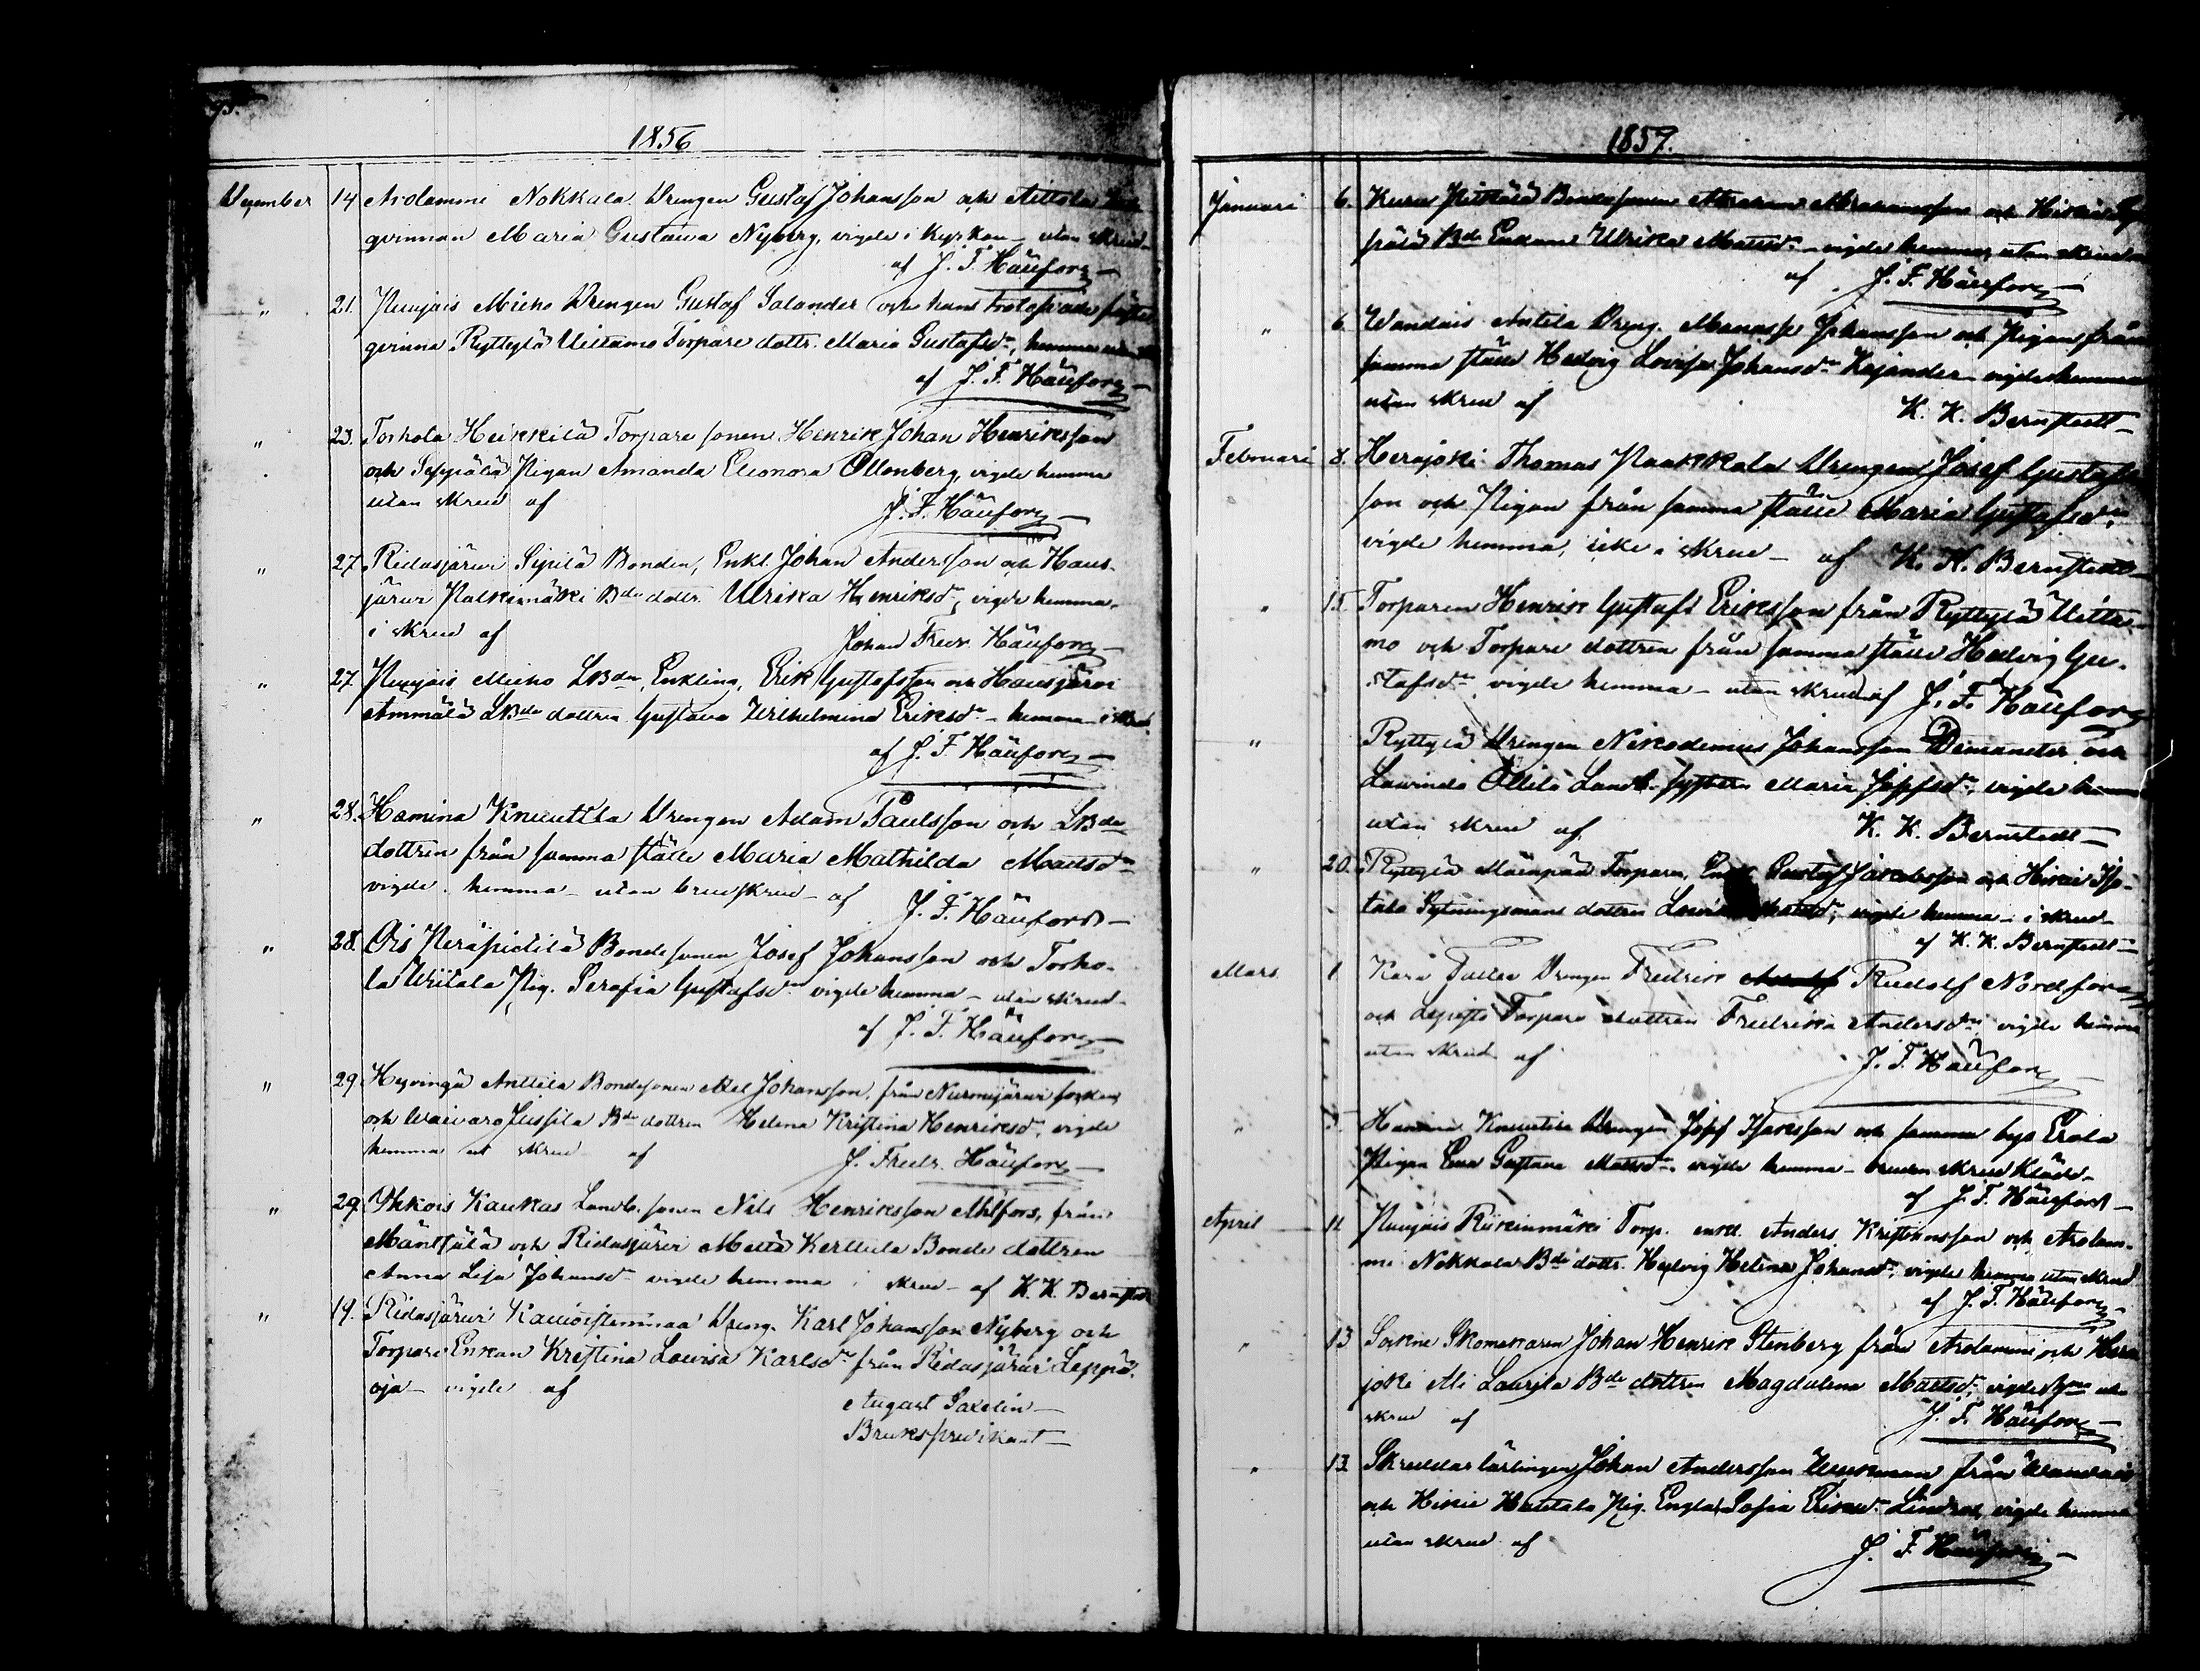 93.
1856
December 14 Arolammi Nokkala Drengen Gustaf Johansson och Aittola
gerinnan Maria Gustava Nyberg, vigde i Kyrkan – utan skrud
af J. F. Häüfors
" 21. Nuujais Micko Drengen Gustaf Salander och hans trolofvade
gerinna Ryttylä Uittamo Torpare dottr. Maria Gustafsdr, hemma
af J. F. Häüfors
" 23. Torhola Heikkilä Torpare sonen Henrik Johan Henriksson
och Seppälä Pigan Amanda Eleonora Ollonberg, vigde hemma
utan skrud af J. F. Häüfors
" 27 Ridasjärvi Sipilä Bonden, Enkl. Johan Andersson och Haus-
järvi Palkinmäki Bde dottr. Ulrika Henriksdr, vigde hemma
i skrud af Johan Fredr. Häüfors
" 27. Nuujais Micko LBdn, Enkling, Erik Gustafsson och Hausjärvi
Ammälä LBde dottren Gustava Wilhelmina Eriksdr – hemma – i skrud
af J. F. Häüfors
" 28. Hamina Knuuttila Drengen Adam Paulsson och LBde
dottren från samma ställe Maria Mathilda Matsdr
vigde hemma – utan brudskrud – af J. F. Häüfors
" 28. Ois Peräpietilä Bondesonen Josef Johansson och Torho-
la Uitala Pig. Serafia Gustafsdr vigde hemma – utan skrud
af J. F. Häüfors
" 29 Hyvingä Anttila Bondesonen Abel Johansson, från Nurmijärvi socken
och Waivaro Jussila Bde dottren Helena Kristina Henriksdr, vigde
hemma ut skrud af J. Fredr. Häüfors
" 29 Ykkois Kaukas Landb. sonen Nils Henriksson Ahlfors, från
Mäntsälä och Ridasjärvi Mettä Kerttula Bonde dottren
Anna Lisa Johansdr vigde hemma i skrud – af K. K. Bernstedt
" 19. Ridasjärvi Kauvistenmaa Dreng. Karl Johansson Nyberg och
Torpare Enkan Kristina Lovisa Karlsdr från Ridasjärvi Leppä-
oja – vigde af
August Gaddin
Brukspredikant
1857.
Januari 6. Kuru Pietilä Bondesonen Abraham Abrahamsson och Hikiä
pälä Bde Enkan Ulrika Mattsdr – vigde hemma, utan skrud
af J. F. Häüfors
" 6. Wandais Antila Dreng. Manasse Johansson och Pigan från
samma ställe Hedvig Lovisa Johansdr Kajander – vigde hemma
utan skrud af K. K. Bernstedt
Februari 8. Herajoki Thomas Paakkala Drengen Josef Gustafs
son och Pigan från samma ställe Maria Gustafsdr,
vigde hemma, icke i skrud – af K. K. Bernstedt
" 15. Torparen Henrik Gustaf Eriksson från Ryttylä Uitta-
mo och Torpare dottren från samma ställe Hedvig Gu-
stafsdr vigde hemma – utan skrud af J. F. Häüfors
" Ryttylä Drengen Nikodemus Johansson Demander och
Lavinda Ollila Landb. systern Maria Josefsdr, vigde hemma
utan skrud af K. K. Bernstedt
" 20. Ryttylä Mäenpää Torparn, Gustaf Jakobsson och Hikiä Iso-
talo Sytningsmans dottren Lovisa vigde hemma – i skrud
af K. K. Bernstedt
Mars 1 Karä Drengen Fredrik Rudolf Nordfors
och Lepistö Torpare dottren Fredrika Andersdr vigde hemma
utan skrud af J. F. Häüfors
" Hamina Knuutila Drengen Josef Isaksson och samma bys Erola
Pigan Eva Gustava Mattsdr, vigde hemma – bruden skrud klädd
af J. F. Häüfors
April 11 Nuujais Riikinmäki Torp. enkl. Anders Kristiansson och Arolam-
mi Nokkala Bde dottr. Hedvig Helena Johansdr, vigde hemma utan skrud
af J. F. Häüfors
" 13 Sockne Skomakaren Johan Henrik Stenberg från Arolammi och Hera
joki Ali Laurila Bde dottren Magdalena Mattsdr, vigde hma utan
skrud af J. F. Häüfors
" 13 Skräddar lärlingen Johan Andersson från Wandais
och Hikiä Hautala Pig. Engla Sofia Eriksdr vigde hemma
utan skrud af J. F. Häüfors